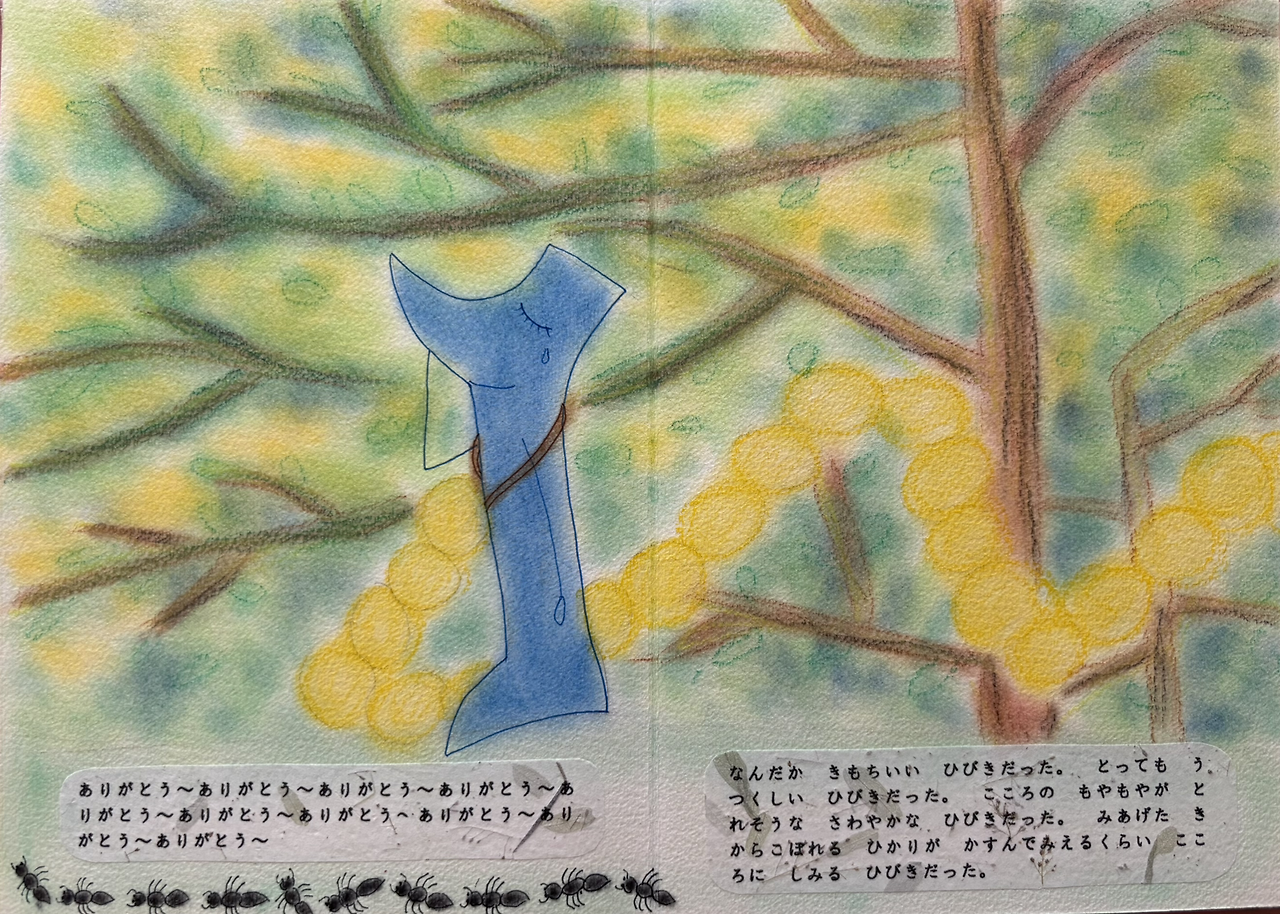 ありがとう〜ありがとう〜ありがとう〜ありがとう〜あ
りがとう〜ありがとう〜ありがとう〜ありがとう〜あり
がとう〜ありがとう〜
なんだか　きもちいい　ひびきだった。　とっても　う
つくしい　ひびきだった。　こころの　もやもやが　と
れそうな　さわやかな　ひびきだった。　みあげた　き
からこぼれる　ひかりが　かすんでみえるくらい　ここ
ろに　しみる　ひびきだった。